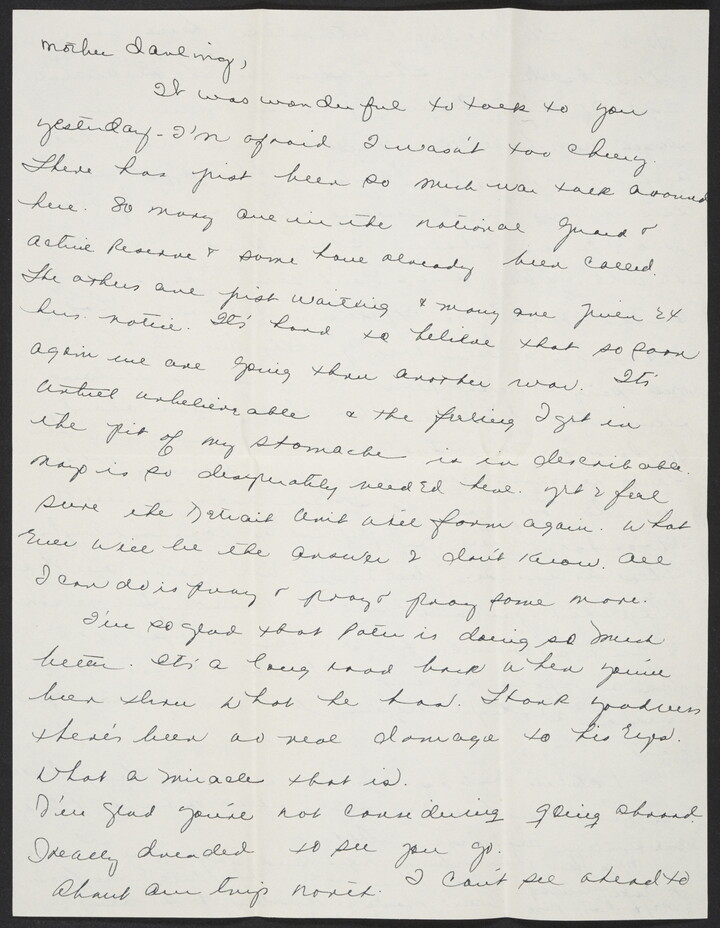 Mother darling,
It was wonderful to talk to you
yesterday - I'm afraid I wasn't too cheery.
There has just been so much war talk around
here. So many are in the national guard &
active Reserve & some have already been called.
The others are just waiting & many are given 24
hrs. notice. It's hard to believe that so soon
again we are going thru another war. It's
until unbelievable & the feeling I get in
the pit of my stomache is in describable.
is so desperately needed here. yet I feel
sure the Detroit Unit will form again. What
Ever will be the answer I don't know. All
I can do is pray & pray & pray some more.
I'm so glad that is doing so much
better. It's a long road back when you've
been thru what he has. Thank goodness
there's been no real damage to his Eyes.
What a miracle that is.
I'm glad you're not considering going abroad.
I really dreaded to see you go.
About our trip north. I can't see ahead to